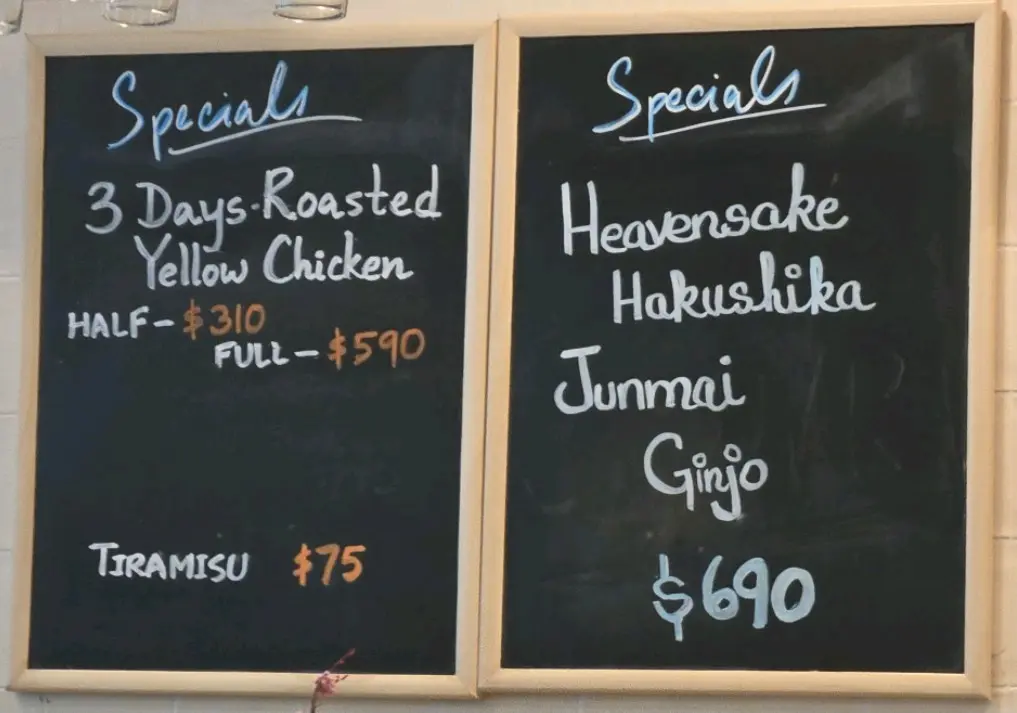 Specials
3 Days-Roasted
Yellow Chicken
HALF - $310
FULL - $590
TIRAMISU $75
Specials
Heavensake
Hakushika
Junmai
Ginjo
$690